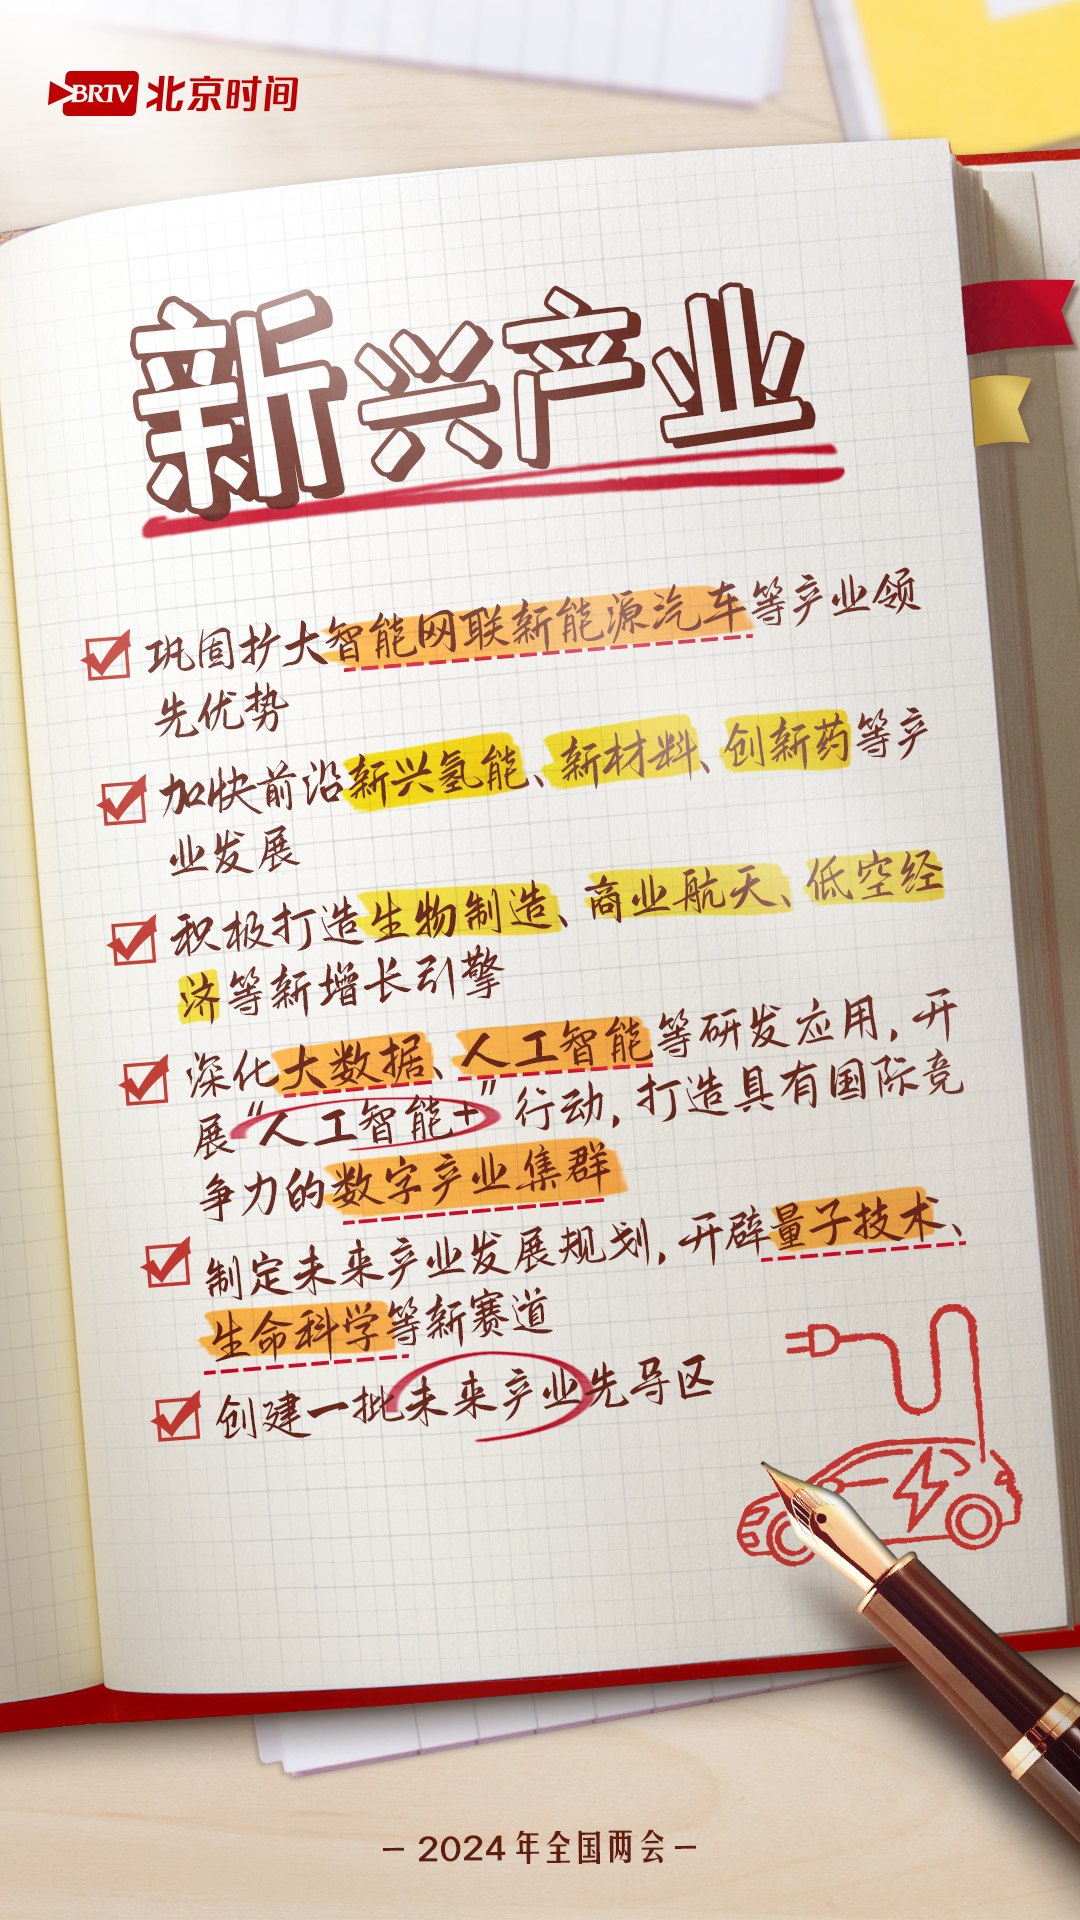 BRTV 北京时间
新兴产业
巩固扩大智能网联新能源汽车等产业领
先优势
加快前沿新兴氢能、新材料、创新药等产
业发展
积极打造生物制造、商业航天、低空经
济等新增长引擎
深化大数据、人工智能等研发应用,开
展“人工智能+”行动,打造具有国际竞
争力的数字产业集群
制定未来产业发展规划,开辟量子技术、
生命科学等新赛道
创建一批未来产业先导区
— 2024年全国两会 —